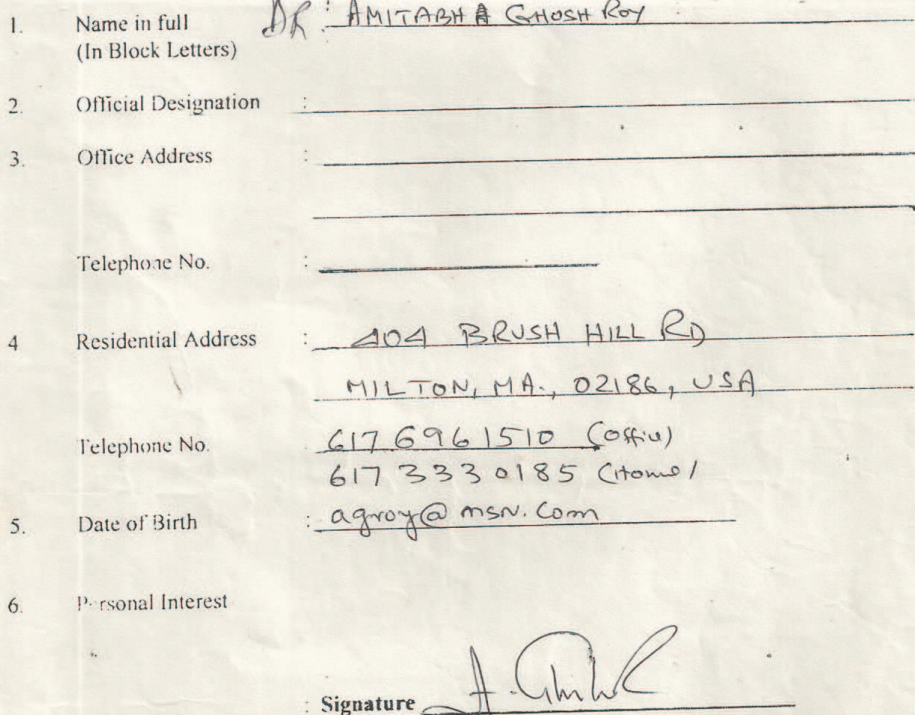 1. Name in full DR : AMITABH A GHOSH ROY
(In Block Letters)
2. Official Designation :
3. Office Address :
Telephone No. :
4 Residential Address : 404 BRUSH HILL RD
MILTON, MA., 02186, USA
Telephone No. 617 696 1510 (Office)
617 333 0185 (Home)
5. Date of Birth : agroy@msn.com
6. Personal Interest
: Signature